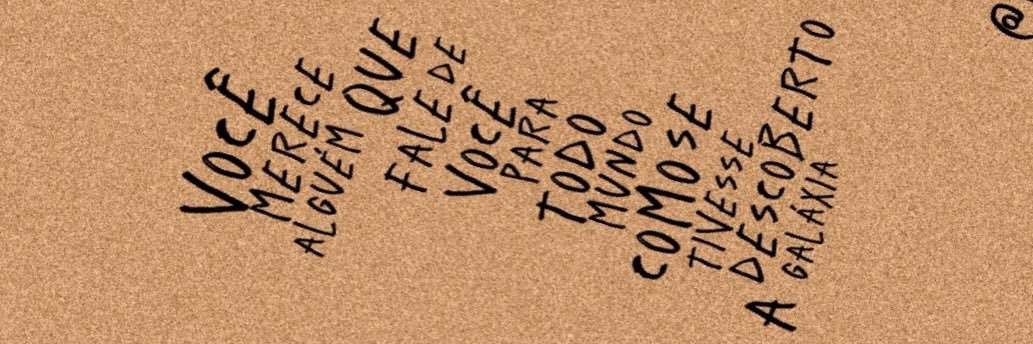 VOCÊ
MERECE
ALGUÉM QUE
FALE DE
VOCÊ
PARA
TODO
MUNDO
COMO SE
TIVESSE
DESCOBERTO
A GALÁXIA
@